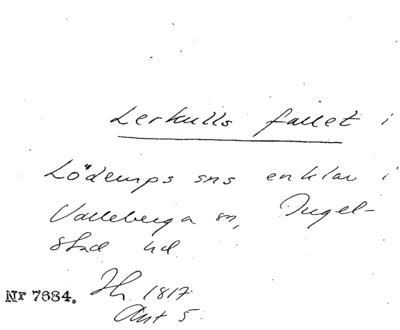 Lerkulls fallet i
Löderups sns enklav i
Valleberga sn, Ingel-
stad hd
Nr 7684. Th. 1817
Akt 5.